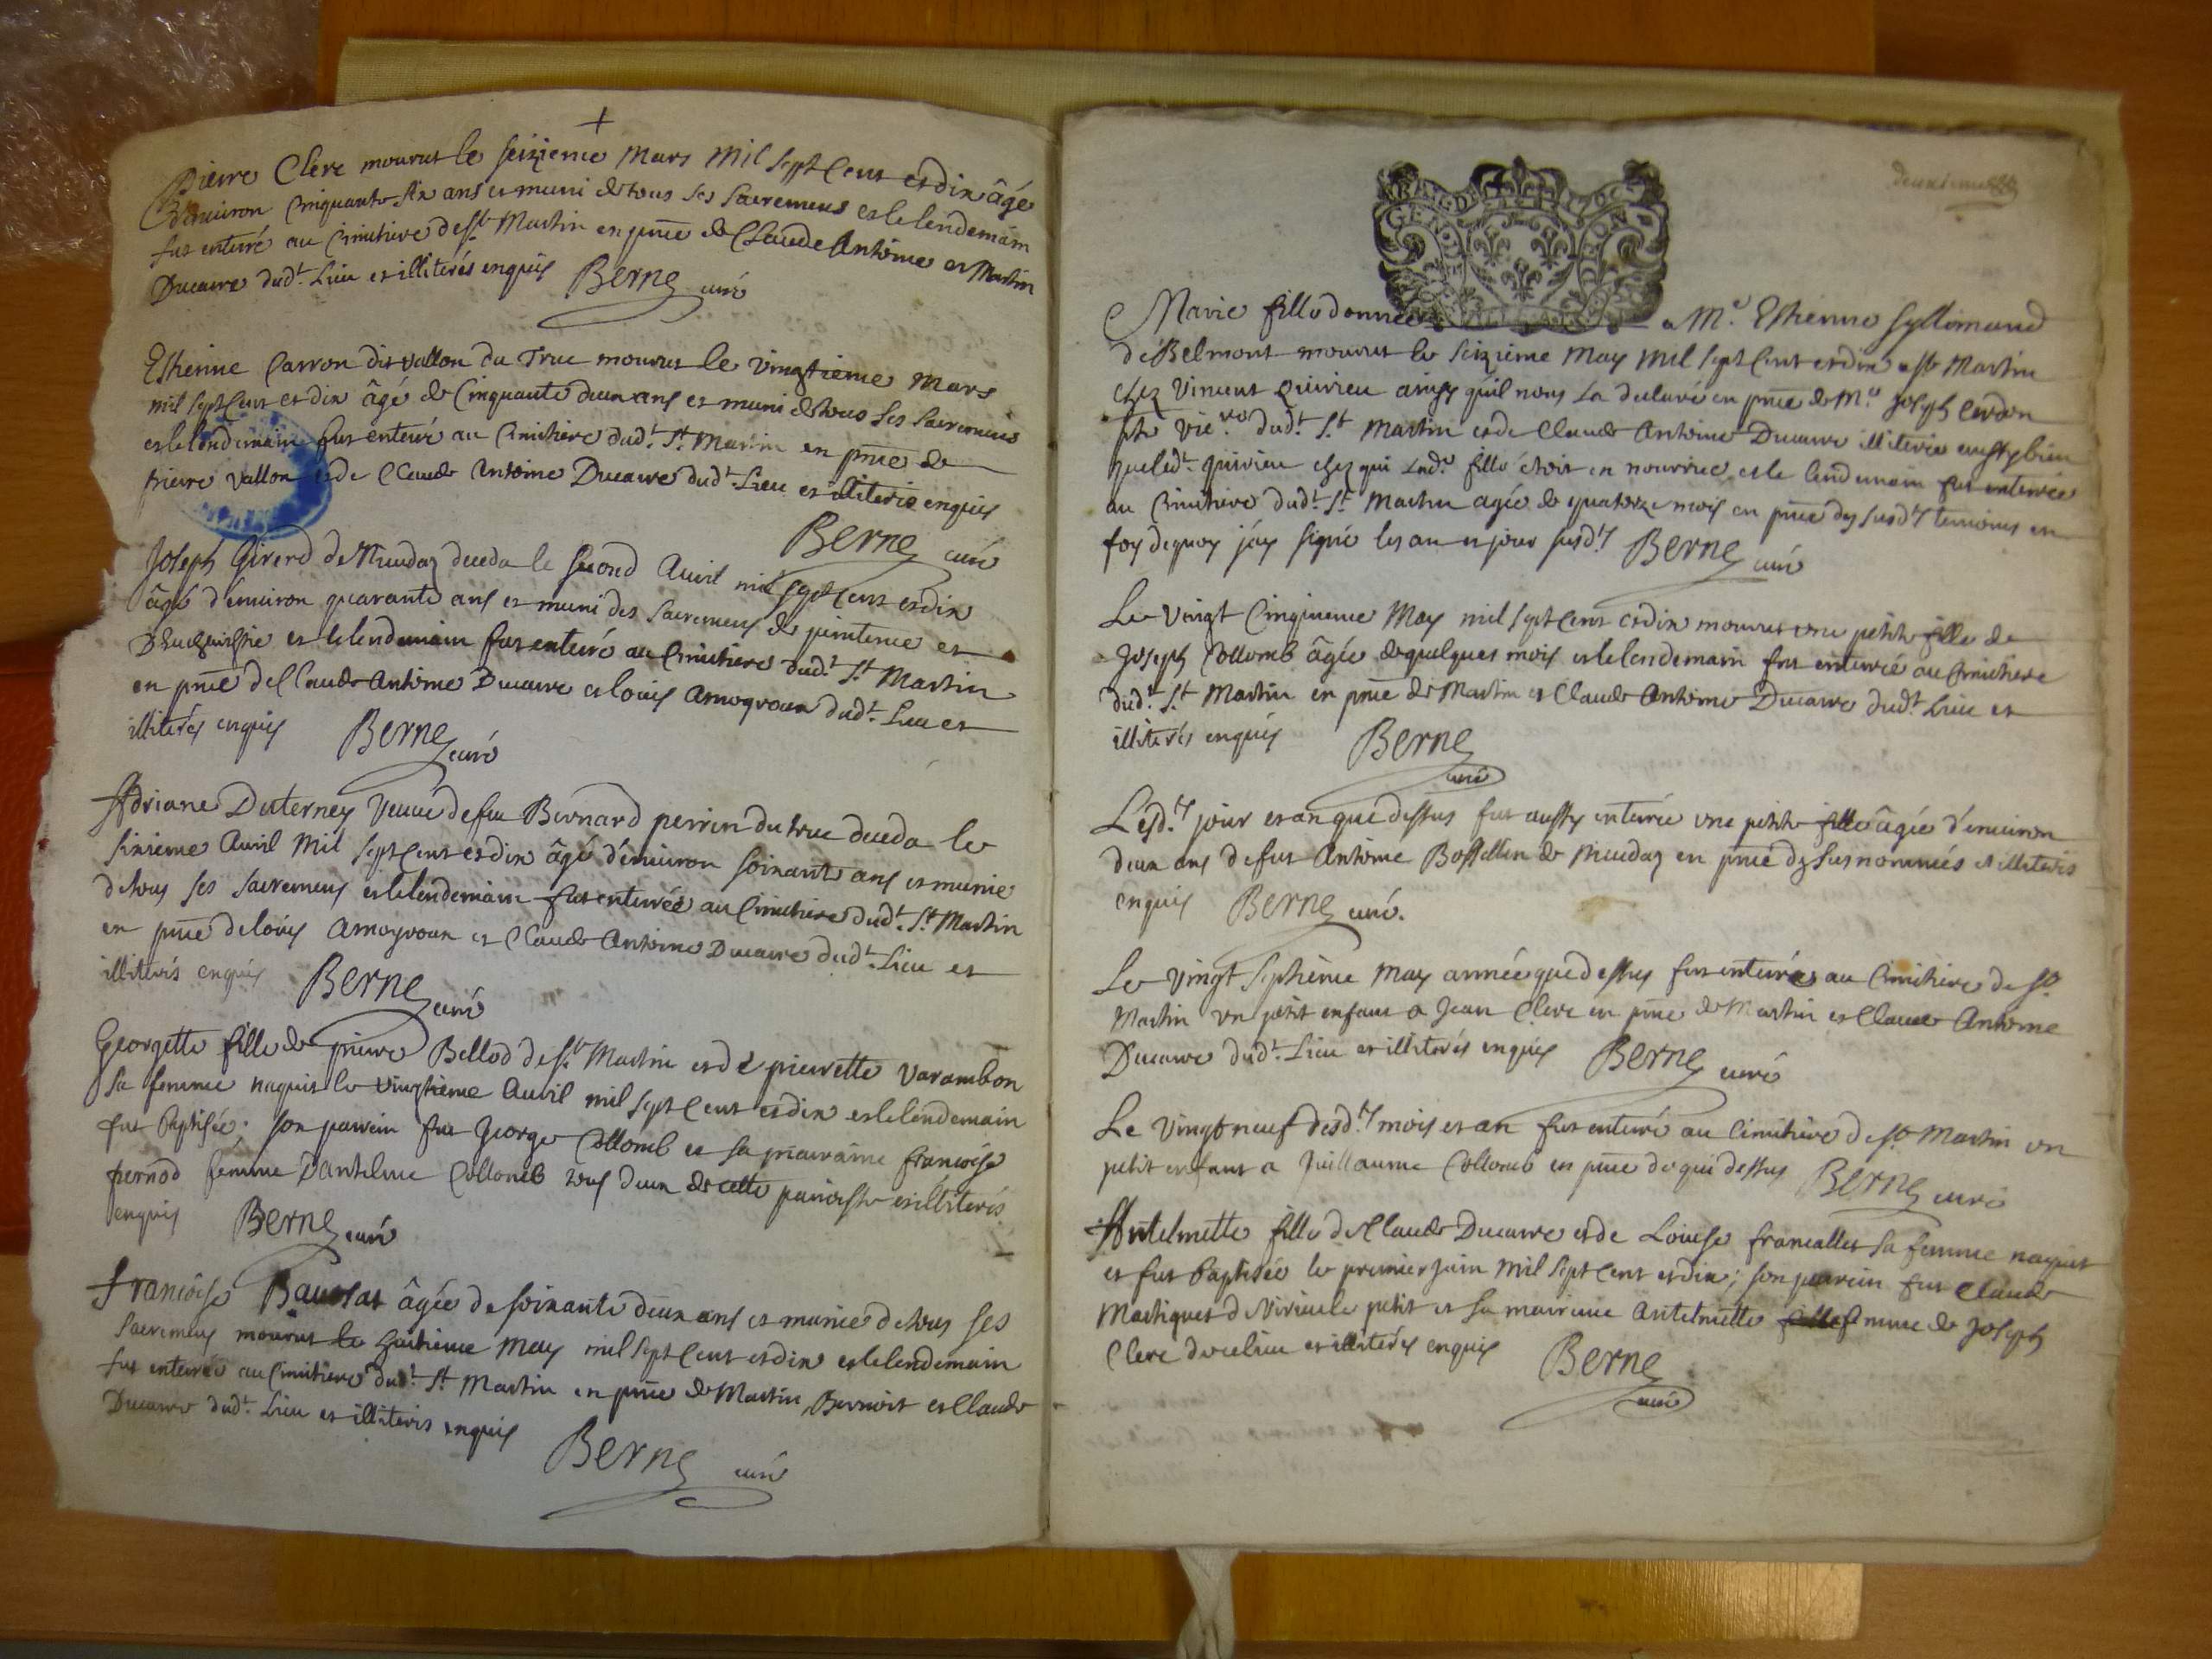 +
Pierre Clerc mourut le seizieme Mars Mil sept Cent et dix âgé
d'enuiron Cinquante six ans et muni de tous ses Sacremens et le lendemain
fut enterré au Cimitiere de st Martin en pnce de Claude Antoine et Martin
Ducaire dudt. Lieu et illiterés enquis Berne curé
Estienne Carron dit vallon du Truc mourut le vingtieme Mars
mil sept Cent et dix âgé de Cinquante deux ans et muni de tous ses Sacremens
et le lendemain fut enterré au Cimitiere dudt. St. Martin en pnce de
pierre Vallon et de Claude Antoine Ducaire dudt. Lieu et illiteris enquis
Berne curé
Joseph Girerd de deceda le second Auril mil sept Cent et dix
âgé d'enuiron quarante ans et muni des Sacremens de penitence et
et le lendemain fut enterré au Cimitiere dudt. St. Martin
en pnce de Claude Antoine Ducaire et louis dudt. Lieu et
illiterés enquis Berne curé
Adriane Duterney Veuue de feu Bernard perrin du truc deceda le
sixieme Auril Mil sept Cent et dix âgé d'enuiron soixante ans et munie
de tous ses sacremens et le lendemain fut enterrée au Cimitiere dudt. St. Martin
en pnce de louis et Claude Antoine Ducaire dudt. Lieu et
illiterés enquis Berne curé
Georgette fille de pierre Bellod de st. Martin et de pierrette Varambon
sa femme naquit le vingtieme Auril mil sept Cent et dix et le lendemain
fut Baptisée; son parrein fut George Collomb et sa marraine francoise
pernod femme D'antelme Collomb tous deux de cette paroisse et illiterés
enquis Berne curé
francoise âgée de soixante deux ans et munie de tous ses
sacremens mourut le huitieme May mil sept Cent et dix et le lendemain
fut enterrée au Cimitiere dudt. St. Martin en pnce de Martin Bernoit et Claude
Ducaire dudt. Lieu et illiteris enquis
Berne curé
GENERALITE DE
Marie fille donnée a Me. Estienne
de Belmont mourut le seizieme May mil sept Cent et dix a st Martin
chez Vincent quivieu ainsy qu'il nous la declaré en pnce de Mre Joseph Cerdon
ptre vicre dudt. St. Martin et de Claude Antoine Ducaire illiteris aussy bien
que ledt. quivieu chez qui ladte fille étoit en nourrice et le lendemain fut enterrée
au Cimitiere dudt. St. Martin agée de quatorze mois en pnce des susdts temoins en
foy de quoy j'ay signé les an et jour susdts Berne curé
Le vingt Cinqieme May mil sept Cent et dix mourut une petite fille de
Joseph Collomb âgée de quelques mois et le lendemain fut enterrée au Cimitiere
dudt. St. Martin en pnce de Martin et Claude Antoine Ducaire dudt. Lieu et
illiterés enquis Berne
curé
Lesdts jour et an que dessus fut aussy enterrée une petite fille âgée d'enuiron
deux ans de fut Antoine de en pnce des susnommés et illiteris
enquis Berne curé.
Le vingt septieme May année que dessus fut enterrée au Cimitiere de st
Martin un petit enfant a Jean Clerc en pnce de Martin et Claude Antoine
Ducaire dudt. Lieu et illiterés enquis Berne curé
Le vingt neuf desdts mois et an fut enterré au Cimitiere de st Martin un
petit enfant a Guillaume Collomb en pnce de qui dessus Berne curé
Antelmette fille de Claude Ducaire et de Louise francallet sa femme naquit
et fut Baptisée le premier juin Mil sept Cent et dix; son parrein fut Claude
de Virieu le petit et sa marraine Antelmette femme de Joseph
Clerc de ce lieu et illiterés enquis Berne
curé